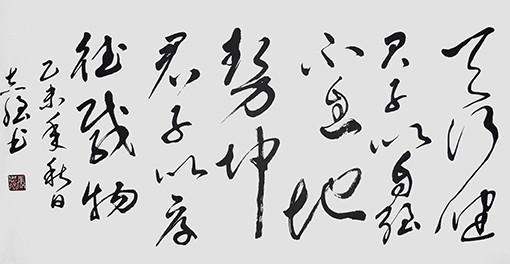 天行健
君子以自强
不息地
势坤
君子以厚
德载物
乙未年秋日
志强书